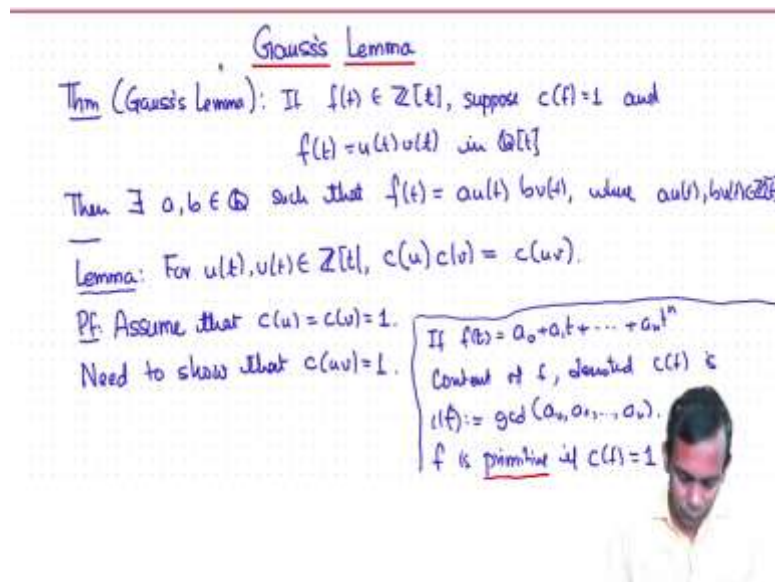 Gauss's Lemma
Thm (Gauss's Lemma): If f(t) ∈ ℤ[t], suppose c(f)=1 and
f(t) = u(t)v(t) in ℚ[t]
Then ∃ a,b ∈ ℚ such that f(t) = au(t) bv(t), where au(t), bv(t)∈ℤ[t]
Lemma: For u(t), v(t) ∈ ℤ[t], c(u)c(v) = c(uv).
Pf: Assume that c(u) = c(v) = 1.
Need to show that c(uv)=1.
If f(t) = a₀+a₁t + ··· + aₙtⁿ
Content of f, denoted c(f) is
c(f):= gcd (a₀, a₁, ..., aₙ).
f is primitive if c(f) = 1